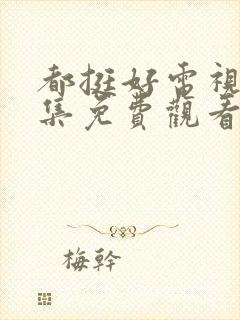 都挺好電視
集免費觀看
梅幹